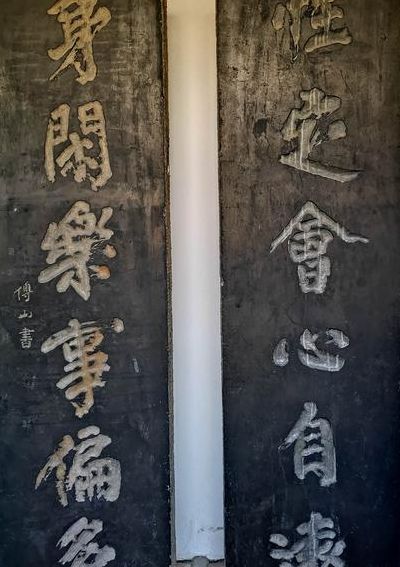 性定會心自遠
身閒樂事偏多
傅山書